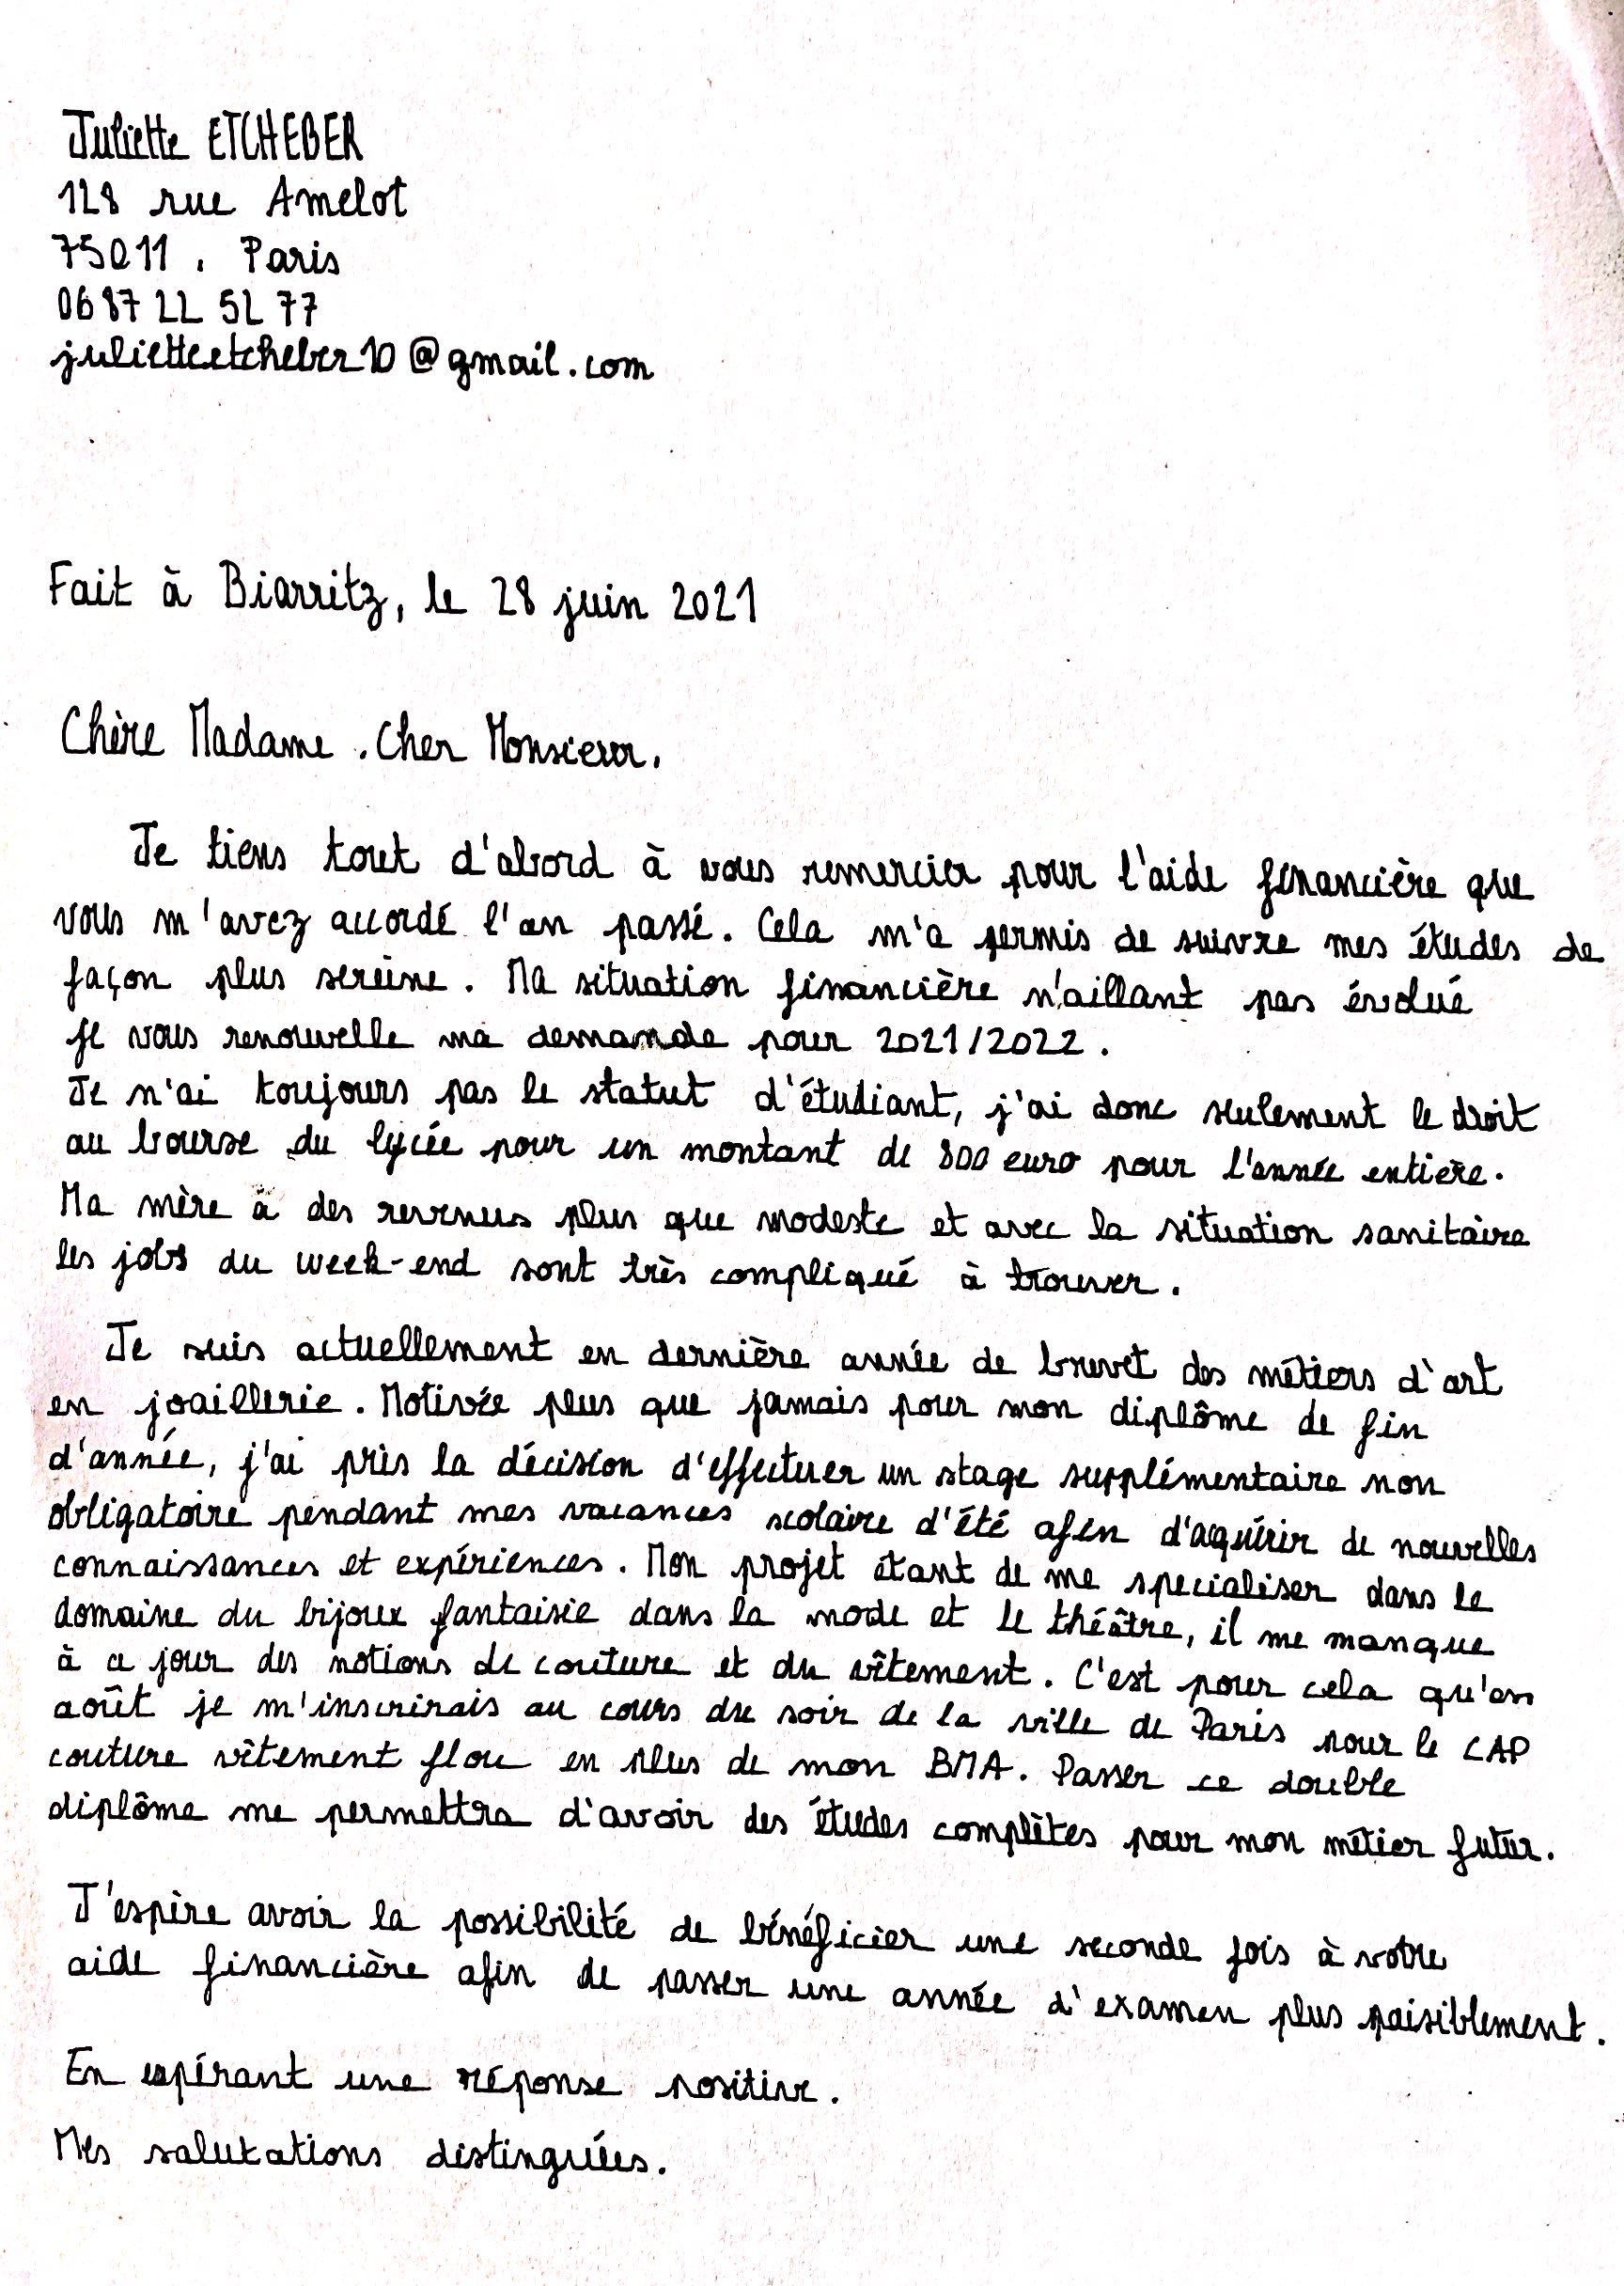 Juliette ETCHEBER
128 rue Amelot
75011, Paris
06 87 22 52 77
julietteetcheber10@gmail.com
Fait à Biarritz, le 28 juin 2021
Chère Madame, Cher Monsieur,
Je tiens tout d'abord à vous remercier pour l'aide financière que
vous m'avez accordé l'an passé. Cela m'a permis de suivre mes études de
façon plus sereine. Ma situation financière n'aillant pas évolué
je vous renouvelle ma demande pour 2021/2022.
Je n'ai toujours pas le statut d'étudiant, j'ai donc seulement le droit
au bourse du lycée pour un montant de 800 euro pour l'année entière.
Ma mère à des revenus plus que modeste et avec la situation sanitaire
les jobs du week-end sont très compliqué à trouver.
Je suis actuellement en dernière année de brevet des métiers d'art
en joaillerie. Motivée plus que jamais pour mon diplôme de fin
d'année, j'ai pris la décision d'effectuer un stage supplémentaire non
obligatoire pendant mes vacances scolaire d'été afin d'aquérir de nouvelles
connaissances et expériences. Mon projet étant de me specialiser dans le
domaine du bijoux fantaisie dans la mode et le théâtre, il me manque
à ce jour des notions de couture et du vêtement. C'est pour cela qu'en
août je m'inscrirais au cours du soir de la ville de Paris pour le CAP
couture vêtement flou en plus de mon BMA. Passer ce double
diplôme me permettra d'avoir des études complètes pour mon métier futur.
J'espère avoir la possibilité de bénéficier une seconde fois à votre
aide financière afin de passer une année d'examen plus paisiblement.
En espérant une réponse positive.
Mes salutations distinguées.